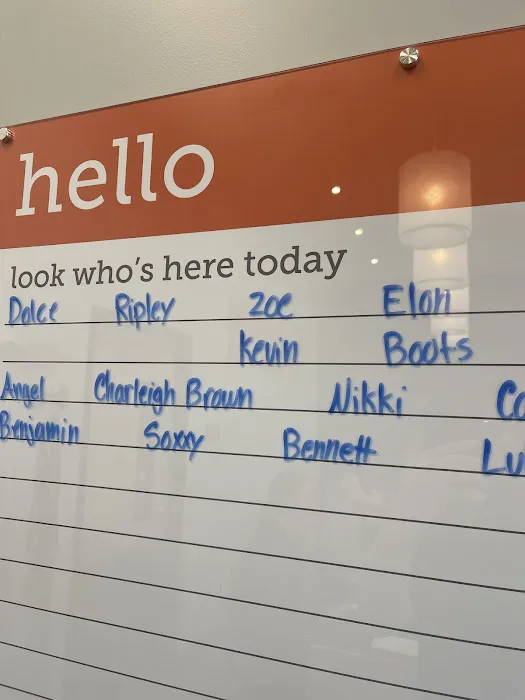 hello
look who's here today
Dolce Ripley Zoe Elon
Kevin Boots
Angel Charleigh Brown Nikki Co
Benjamin Soxxy Bennett Lu